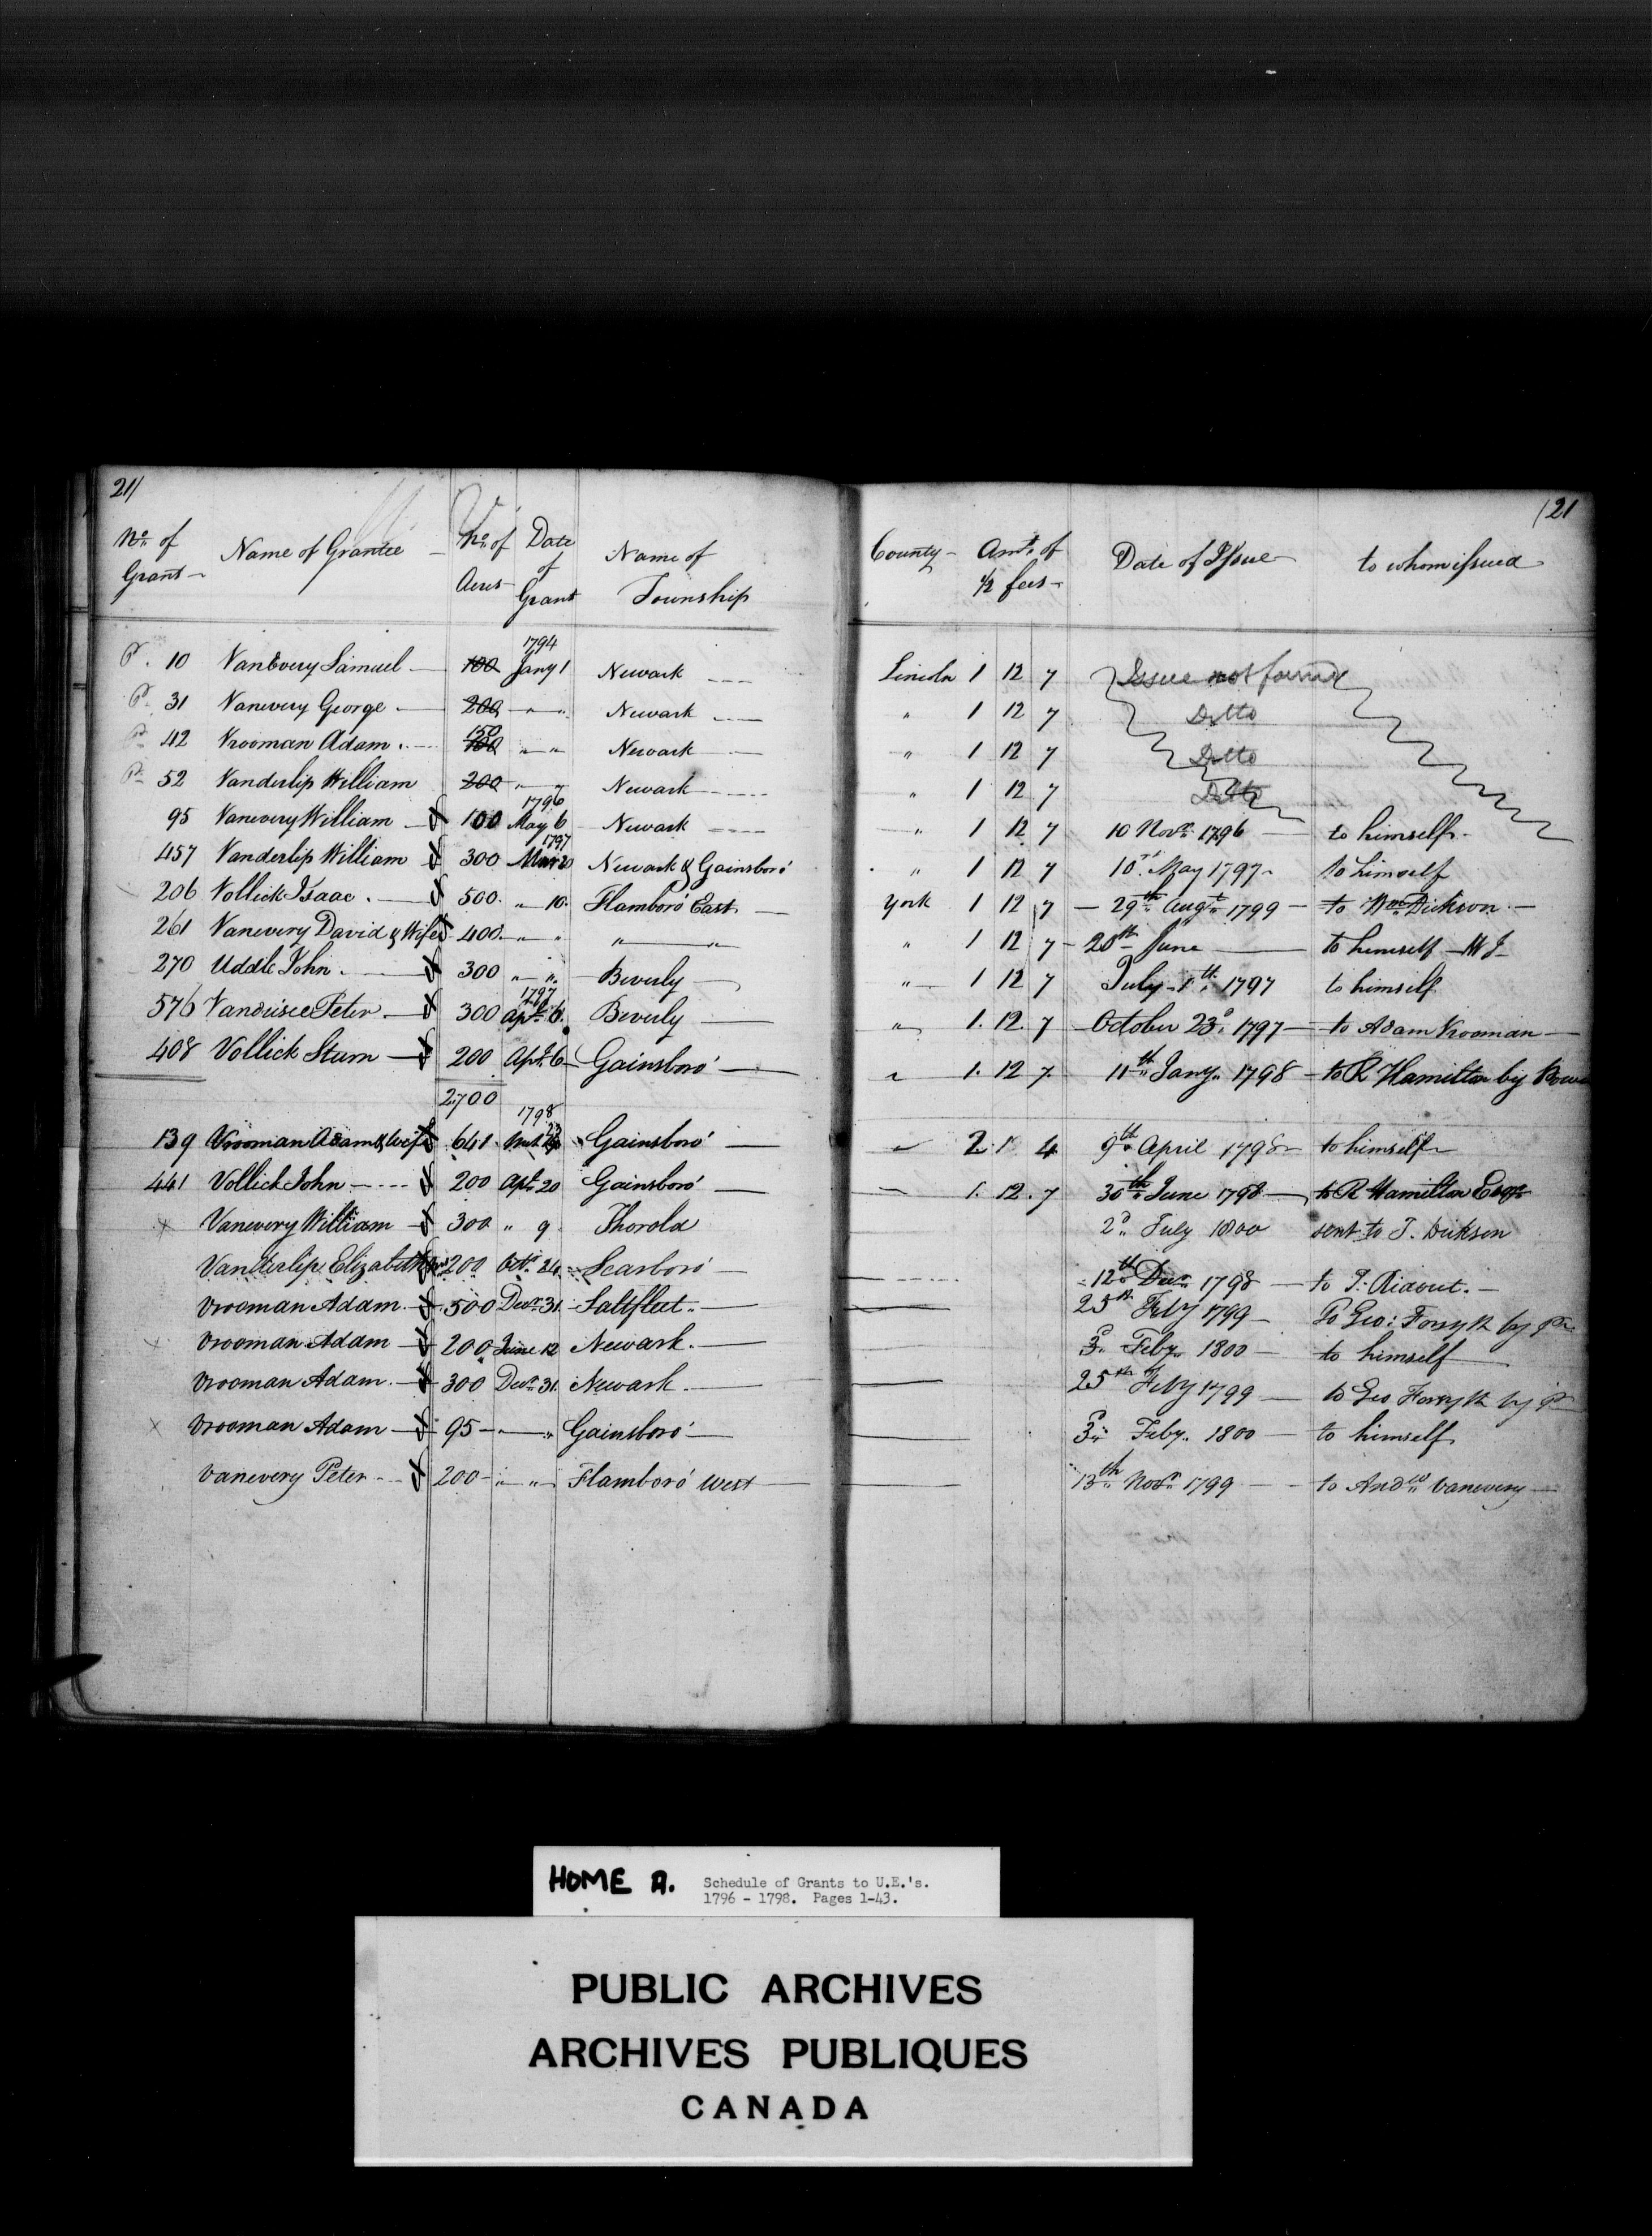 21/
/21
No. of Grant Name of Grantee No. of Acres Date of Grant Name of Township County Amt. of ½ fees Date of Issue to whom issued
1794
P. 10 VanEvery Samuel 100 Jany 1 Newark Lincoln 1 12 7 Issue not found
P. 31 Vanevery George 200 " " Newark " 1 12 7 Ditto
150
P. 42 Vrooman Adam 100 " " Newark " 1 12 7 Ditto
P. 52 Vanderlip William 200 " " Newark " 1 12 7 Ditto
1796
95 Vanevery William 100 May 6 Newark " 1 12 7 10 Novr. 1796 to himself
1797
457 Vanderlip William 300 Newark & Gainsboro' " 1 12 7 10th May 1797 to himself
206 Vollick Isaac 500 " 10 Flamboro' East York 1 12 7 29th Augt. 1799 to Wm. Dickson
261 Vanevery David & Wife 400 " " " " " 1 12 7 20th June to himself
270 Uddle John 300 " " Beverly " 1 12 7 July 1797 to himself
1797
576 Peter 300 Apl. 6 Beverly " 1. 12. 7 October 23d. 1797 to Adam Vrooman
408 Vollick Sturm 200 Apl. 6 Gainsboro' " 1. 12 7. 11th Jany. 1798 to R Hamilton by
2700
1798
139 Vrooman Adam & wife 641 Gainsboro' " 2. 1 4 9th April 1798 to himself
441 Vollick John 200 Apl. 20 Gainsboro' 1. 12. 7 30th June 1798 to R Hamilton Esqr.
x Vanevery William 300 " 9 Thorold 2d. July 1800 sent to T. Dickson
Vanderlip Elizabeth 200 Octr. 24 Scarboro' 12th Decr. 1798 to T. Ridout.
Vrooman Adam 500 Decr. 31 Saltfleet. 25th Feby 1799 To Geo: Forsyth by
x Vrooman Adam 200 June 12 Newark. 3d. Feby. 1800 to himself
Vrooman Adam 300 Decr. 31. Newark. 25th Feby 1799 to Geo Forsyth by
x Vrooman Adam 95 " " Gainsboro' 3d. Feby. 1800 to himself
Vanevery Peter 200 " " Flamboro' West 13th Novr. 1799 to Andw. Vanevery
HOME A. Schedule of Grants to U.E.'s.
1796 - 1798. Pages 1-43.
PUBLIC ARCHIVES
ARCHIVES PUBLIQUES
CANADA